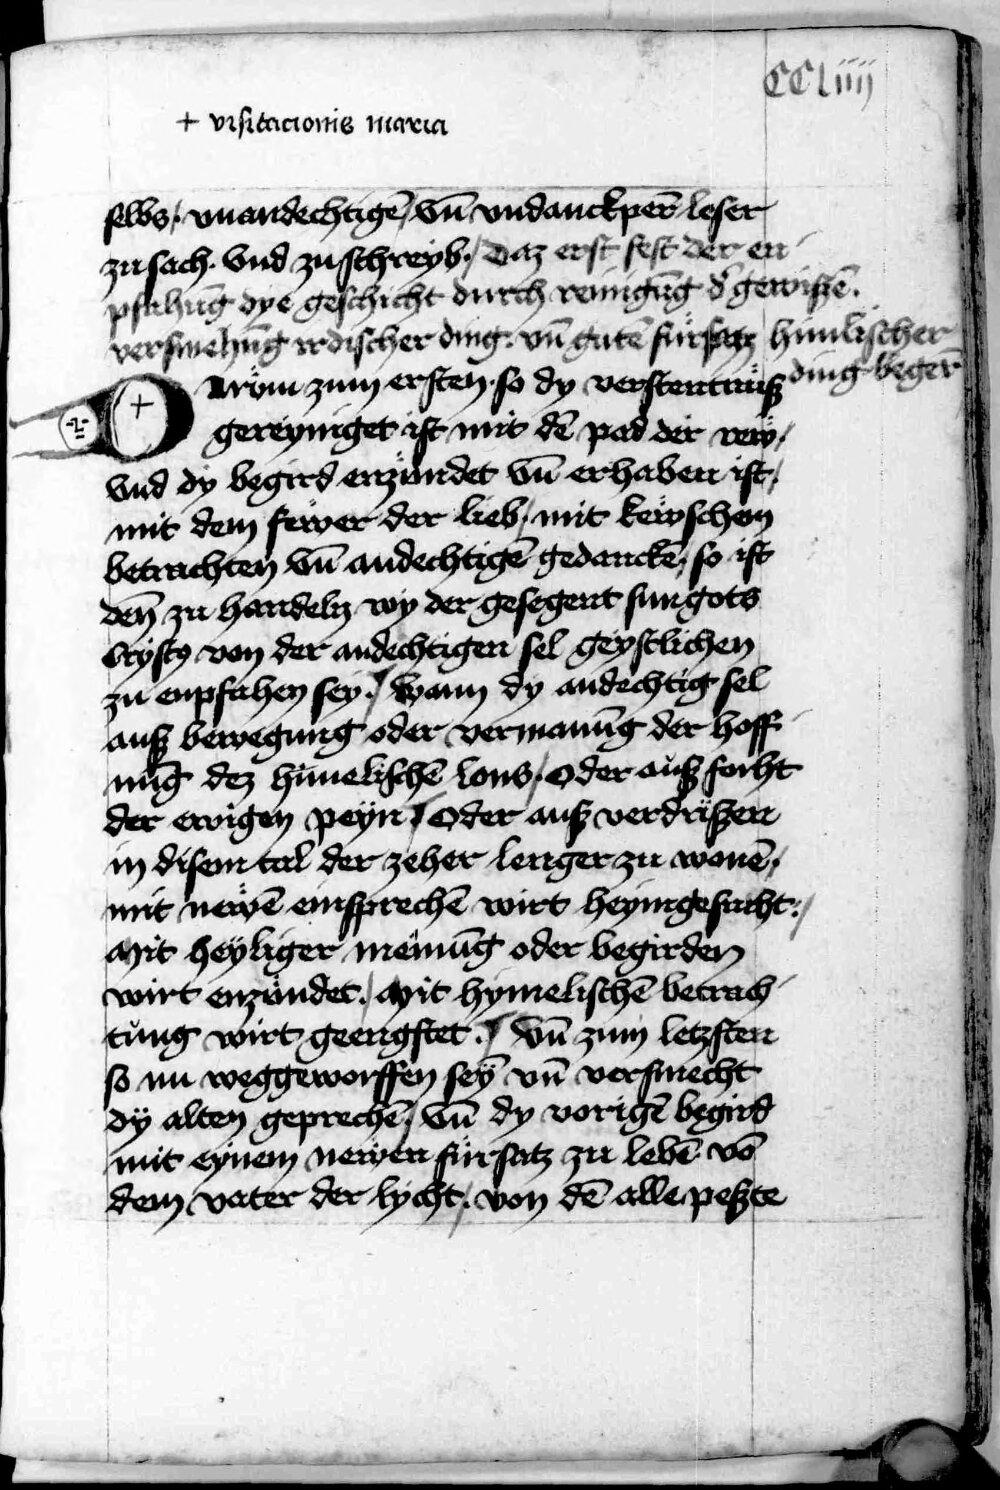 CCLiiij
+ visitacionis maria
selbs / vnandechtigē / vn̄ vndanckperē leser
zu sach. vnd zu schreyb. / Daz erst fest der en
pfahūg dye geschicht durch reinigūg d' gewißē.
versmehūg irdischer ding. vn̄ gutē fürsatz himlischer
ding begerē
Arüm zum ersten. so dy verstentnuß
gereyniget ist mit dē pad der rew /
vnd dy begird enzündet vn̄ erhaben ist /
mit dem fewer der lieb / mit kewschem
betrachten vn̄ andechtigē gedanckē / so ist
den̄ zu handeln wy der gesegent sun gots
cristꝰ von der andechtigen sel geystlichen
zu enpfahen sey. / Wann dy andechtig sel
auß bewegung oder vermanūg der hoff
nūg dez himelischē lons / Oder auß forht
der ewigen peyn / Oder auß verdrißen
in disem tal der zeher lenger zu wonē /
mit newē einsprechē wirt heymgesucht. /
Mit heyliger meinūg oder begirden
wirt enzündet. / Mit hymelischē betrach
tung wirt geengstet. / Vn̄ zum letzsten
so nu weggeworffen sey vn̄ versmecht
dy alten geprechē / vn̄ dy vorigē begird
mit eynem newen fürsatz zu lebē vō
dem vater der lycht / von dē alle peßte